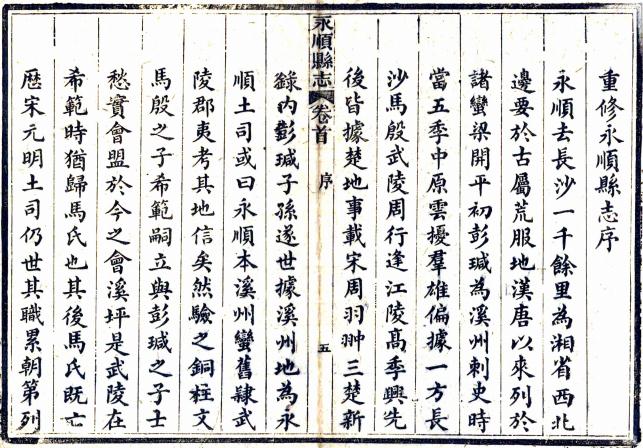 重修永順縣志序
永順去長沙一千餘里為湘省西北
邊要於古屬荒服地漢唐以來列於
諸蠻梁開平初彭瑊為溪州刺史時
當五季中原雲擾羣雄偏據一方長
沙馬殷武陵周行逢江陵高季興先
後皆據楚地事載宋周羽翀三楚新
永順縣志 卷首 序 五
錄內彭瑊子孫遂世據溪州地為永
順土司或曰永順本溪州蠻舊隸武
陵郡夷考其地信矣然驗之銅柱文
馬殷之子希範嗣立與彭瑊之子士
愁實會盟於今之會溪坪是武陵在
希範時猶歸馬氏也其後馬氏既亡
歴宋元明土司仍世其職累朝第列